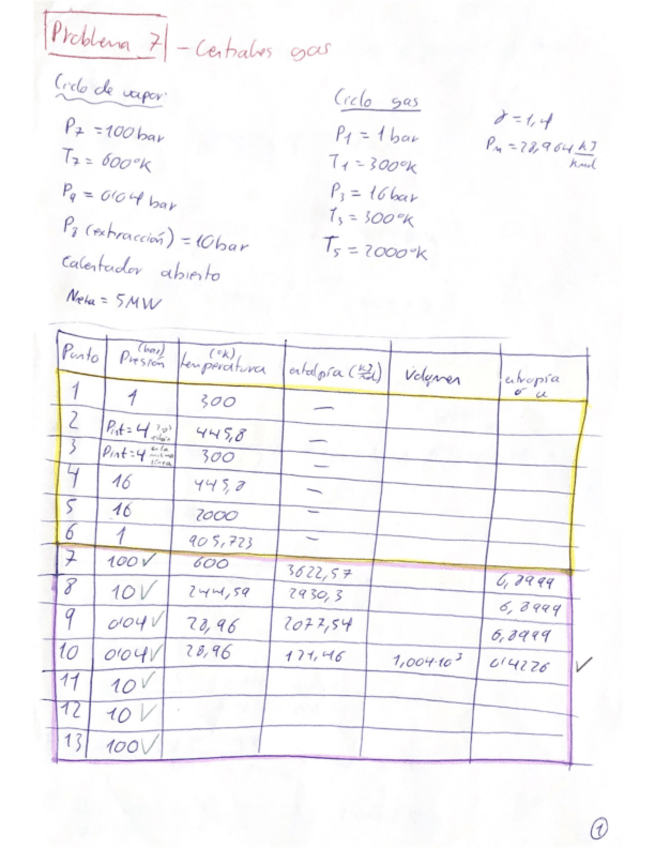 Problema 7 - Centrales gas
Ciclo de vapor:
P7 = 100 bar
T7 = 600°K
P9 = 0'04 bar
P8 (extracción) = 10bar
Calentador abierto
Neta = 5MW
Ciclo gas
P1 = 1 bar
T1 = 300°K
P3 = 16bar
T3 = 300°K
T5 = 2000°K
γ = 1,4
Pm = 28,964 kJ/kmol
Punto (bar) Presión (°K) temperatura entalpía (kJ/ ) Volumen entropía ó u
1 1 300 —
2 Pint = 4 445,8 —
3 Pint = 4 300 —
4 16 445,8 —
5 16 2000 —
6 1 905,723 —
7 100✓ 600 3622,57 6,8999
8 10✓ 244,59 2930,3 6,8999
9 0'04✓ 28,96 2077,54 6,8999
10 0'04✓ 28,96 121,46 1,004·10³ 0'4226 ✓
11 10✓
12 10✓
13 100✓
1